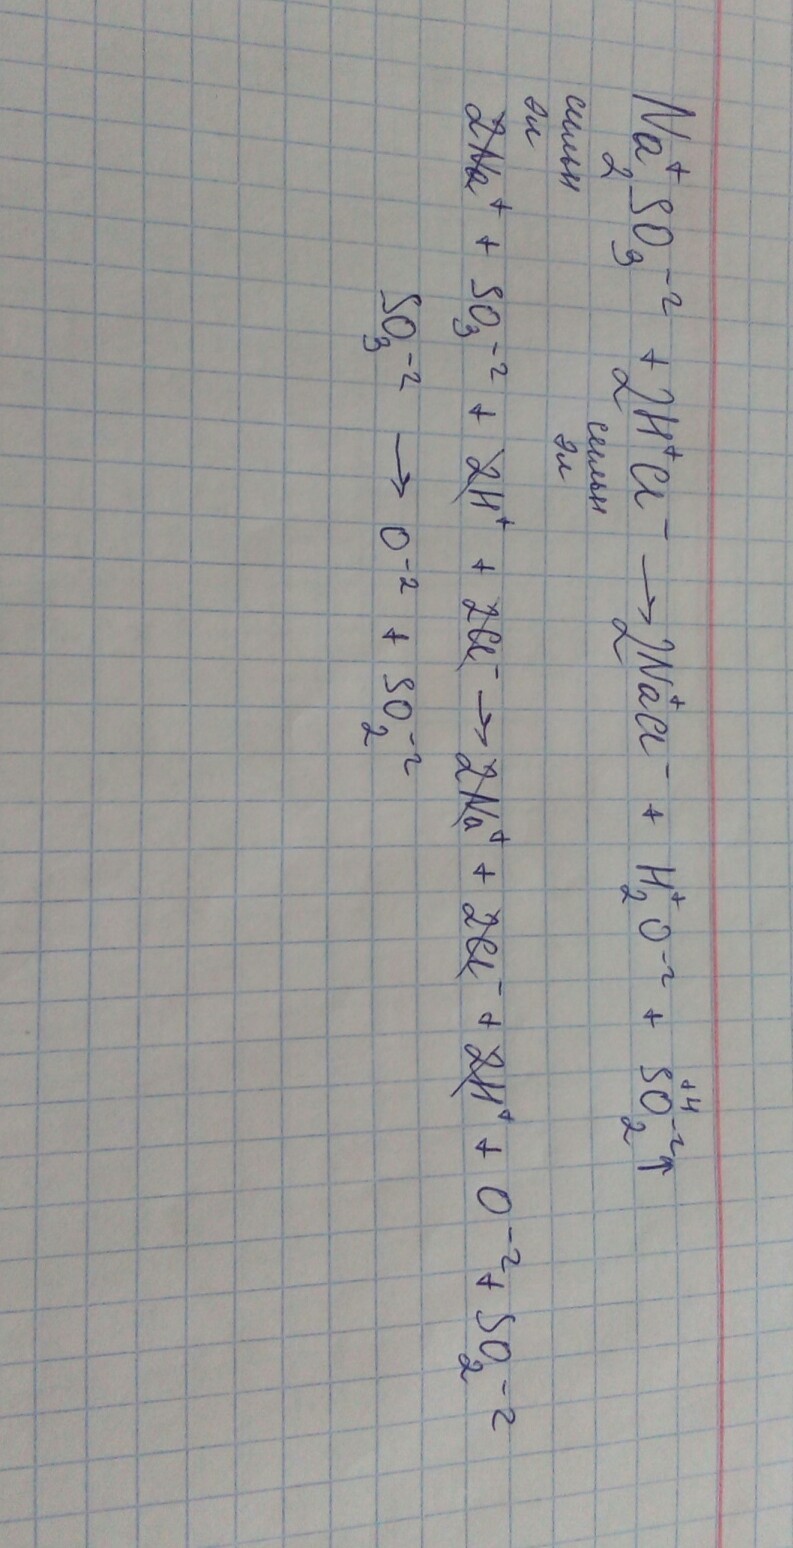 Na₂⁺SO₃⁻² + 2H⁺Cl⁻ → 2Na⁺Cl⁻ + H₂⁺O⁻² + S⁺⁴O₂⁻²↑
сильн эл сильн эл
2Na⁺ + SO₃⁻² + 2H⁺ + 2Cl⁻ → 2Na⁺ + 2Cl⁻ + 2H⁺ + O⁻² + SO₂⁻²
SO₃⁻² → O⁻² + SO₂⁻²